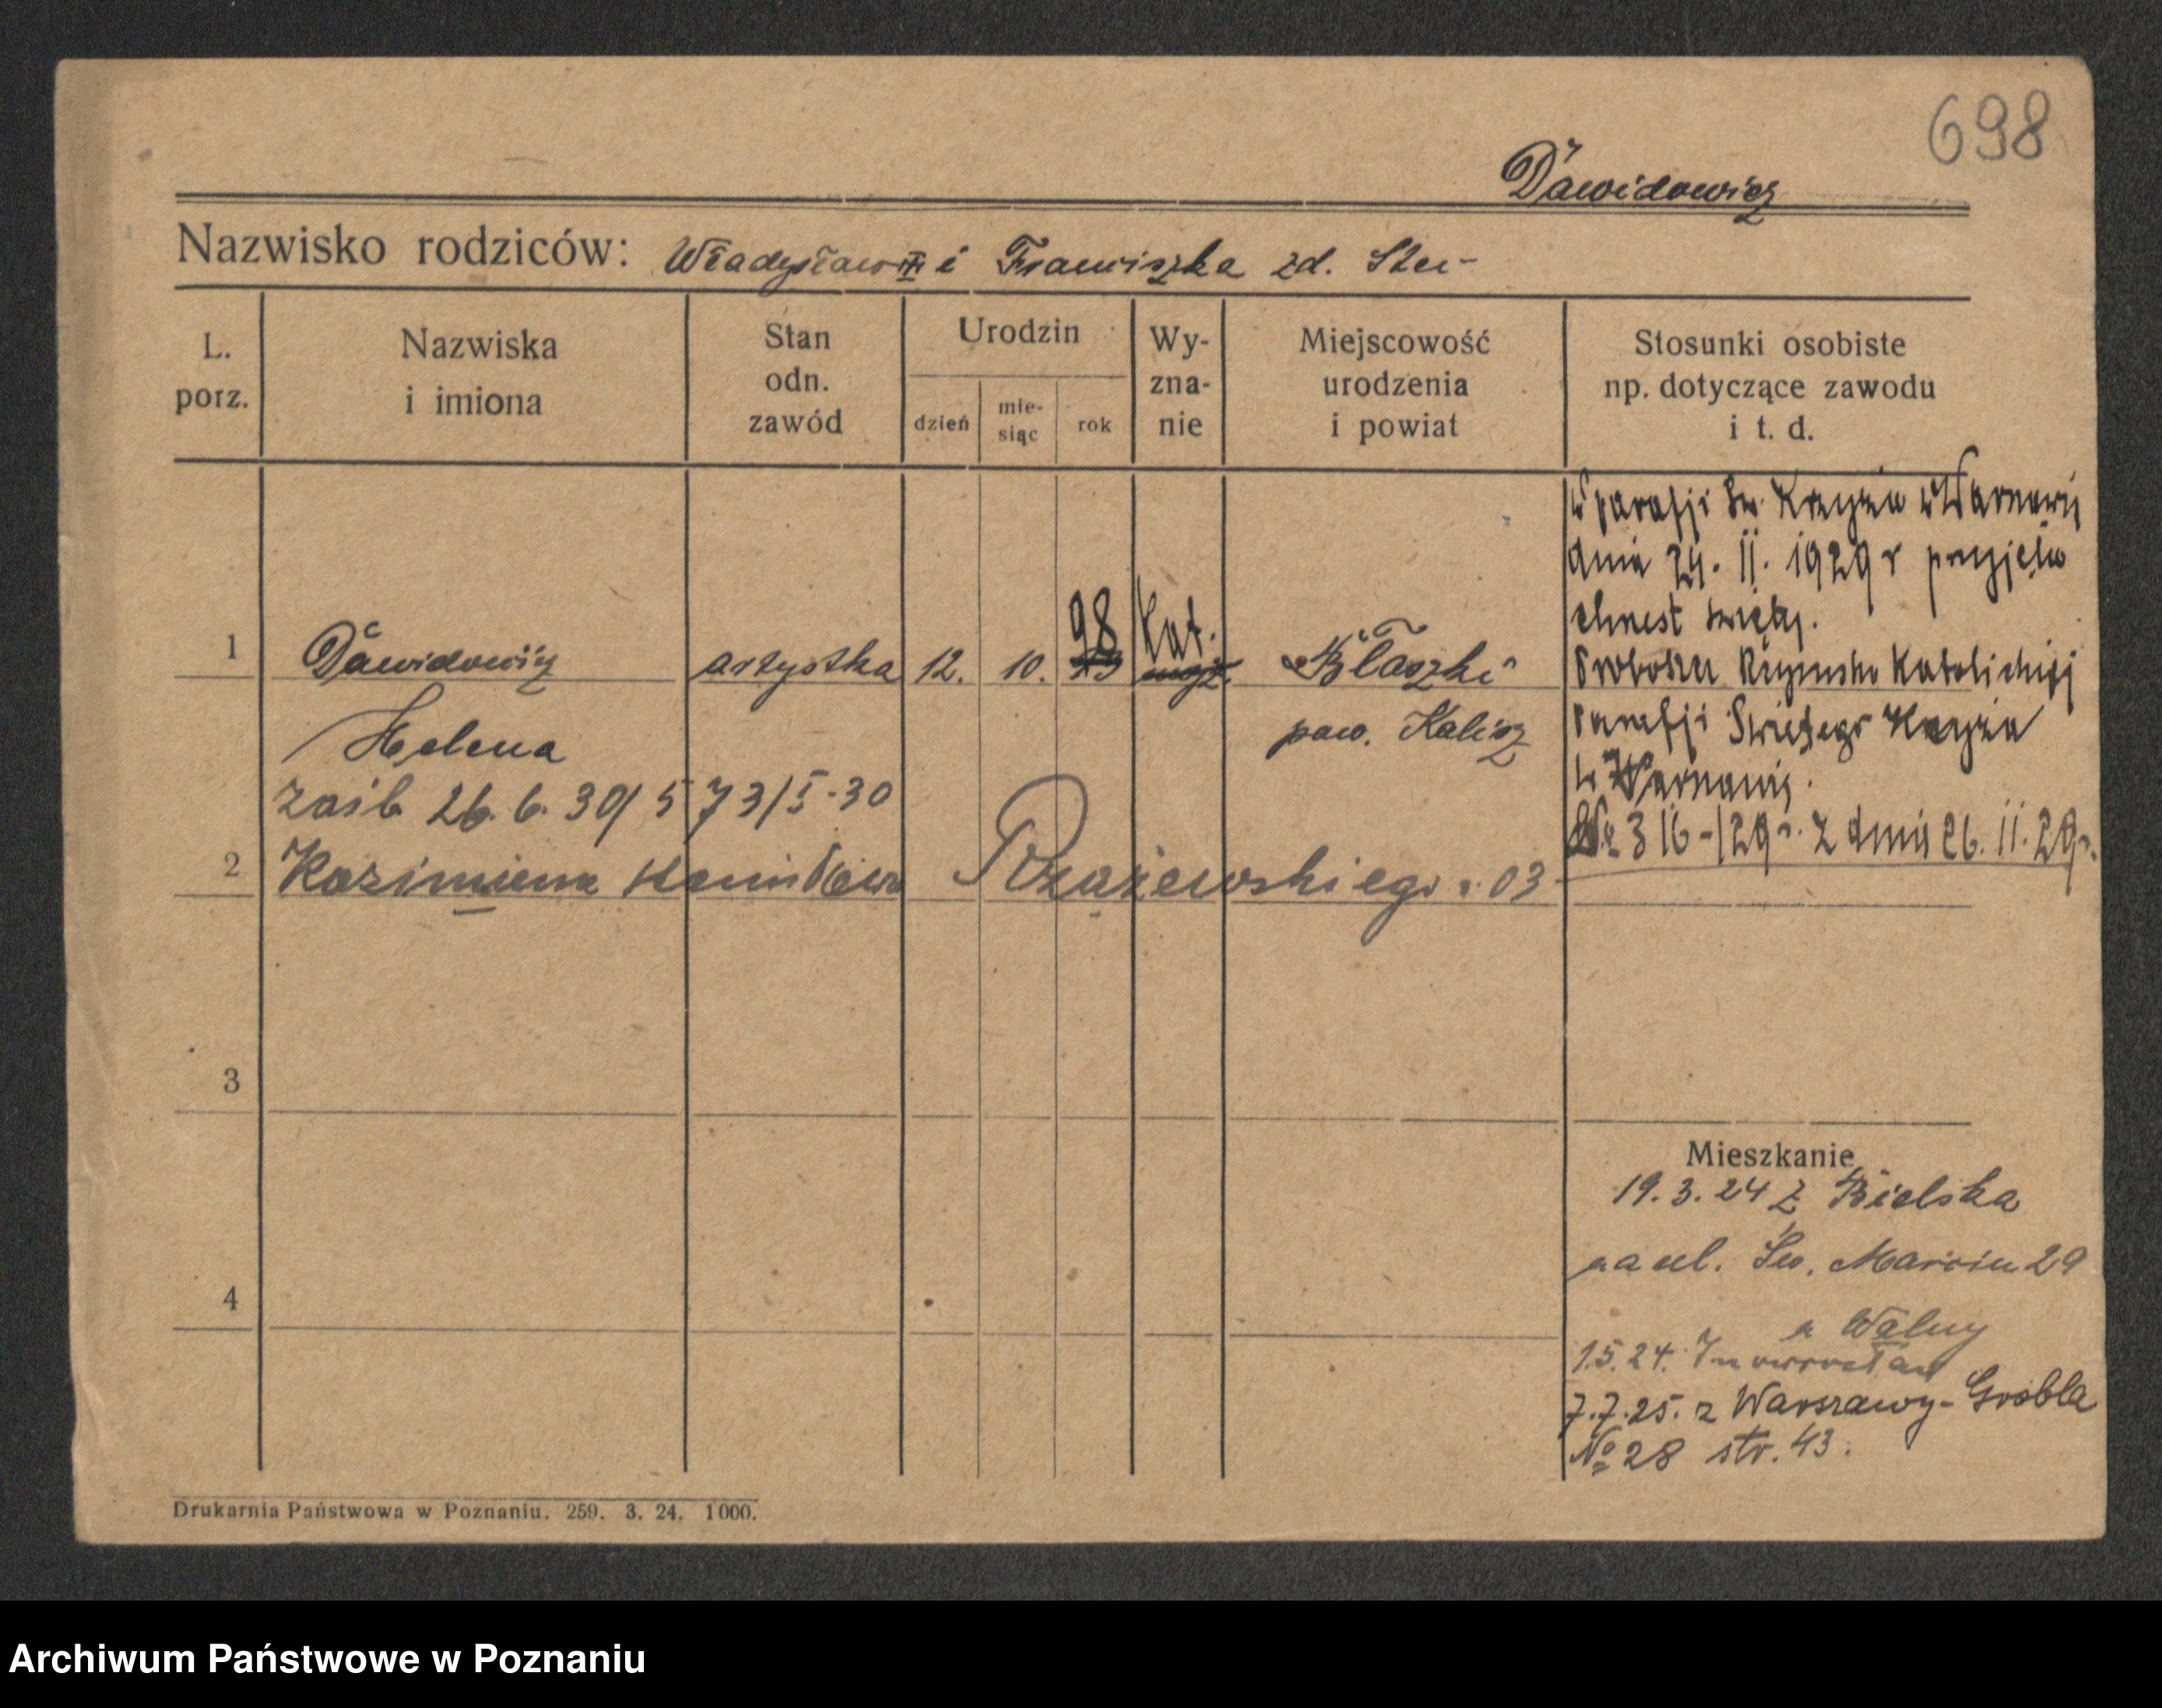 698
Dawidowicz
Nazwisko rodziców: Władysław i Franciszka zd. Sten-
L. porz.
Nazwiska i imiona
Stan odn. zawód
Urodzin
dzień
mie-siąc
rok
Wy-zna-nie
Miejscowość urodzenia i powiat
Stosunki osobiste np. dotyczące zawodu i t. d.
w parafji św. Krzyża w Warszawie
dnia 24. II. 1929 r przyjęła
chrzest święty.
Proboszcz Rzymsko Katolickiej
Parafji Świętego Krzyża
w Warszawie.
No 316-/29 r. z dnia 26. II. 29 r.
1 Dawidowicz artystka 12. 10. 98 Kat. Błaszki
Helena pow. Kalisz
zaśb. 26. 6. 30/573/5-30
2 Kazimierza Rzążewskiego r. 03
3
4
Mieszkanie
19. 3. 24 z Bielska
na ul. Św. Marcin 29
1.5.24. Inowrocław
7.7.25. z Warszawy - Grobla
No 28 str. 43.
Drukarnia Państwowa w Poznaniu. 259. 3. 24. 1000.
Archiwum Państwowe w Poznaniu